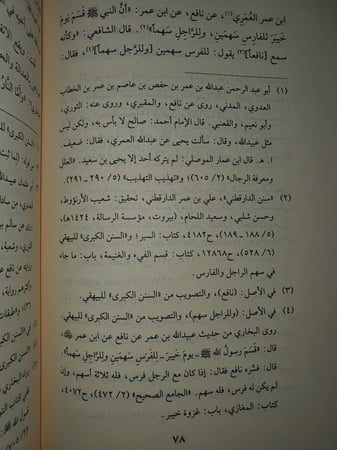 ابن عمر العُمَري(١)، عن نافع، عن ابن عمر: «أنَّ النبي ﷺ قَسَم يَومَ
خَيبَرَ للفارِسِ سَهمَينِ، وللرَّاجِلِ سَهماً»(٢). قال الشافعي: «وكأنه
سمع [نافعاً](٣) يقول: للفرس سهمين [وللرَّجل سهماً](٤)، فقال:
(١) أبو عبد الرحمن عبدالله بن عمر بن حفص بن عاصم بن عمر بن الخطاب
العدوي، المدني، روى عن نافع، والمقبري، وروى عنه: الثوري،
وأبو نعيم، والقعنبي. قال الإمام أحمد: صالح لا بأس به، ولكن ليس
مثل عبيدالله، وقال: سألت يحيى عن عبدالله العمري، فقال: ضعيف.
ا. هـ. قال ابن عمار الموصلي: لم يتركه أحد إلا يحيى بن سعيد. «العلل
ومعرفة الرجال» (٢/ ٦٠٥)؛ و«تهذيب التهذيب» (٥/ ٢٩٠-٢٩١).
(٢) «سنن الدارقطني»، علي بن عمر الدارقطني، تحقيق: شعيب الأرنؤوط،
وحسن شلبي، وسعيد اللحام، (بيروت، مؤسسة الرسالة، ١٤٢٤هـ)،
(٥/ ١٨٨-١٨٩)، ح٤١٨٢، كتاب: السير؛ و«السنن الكبرى» للبيهقي
(٦/ ٥٢٨)، ح١٢٨٦٨، كتاب: قسم الفيء والغنيمة، باب: ما جاء
في سهم الراجل والفارس.
(٣) في الأصل: (نافع)، والتصويب من «السنن الكبرى» للبيهقي.
(٤) في الأصل: (وللراجل سهم)، والتصويب من «السنن الكبرى» للبيهقي.
روى البخاري من حديث عبيدالله بن عمر عن نافع عن ابن عمر
قال: «قَسَم رسولُ الله ﷺ يومَ خَيبَرَ لِلفَرَسِ سَهمَينِ ولِلرَّاجِلِ سَهماً».
قال: فسَّره نافع فقال: إذا كان مع الرجل فرس، فله ثلاثة أسهم، وإن
لم يكن له فرس، فله سهم. «الجامع الصحيح» (٢/ ٤٧٢)، ح٤٠٧٢،
كتاب: المغازي، باب: غزوة خيبر.
٧٨